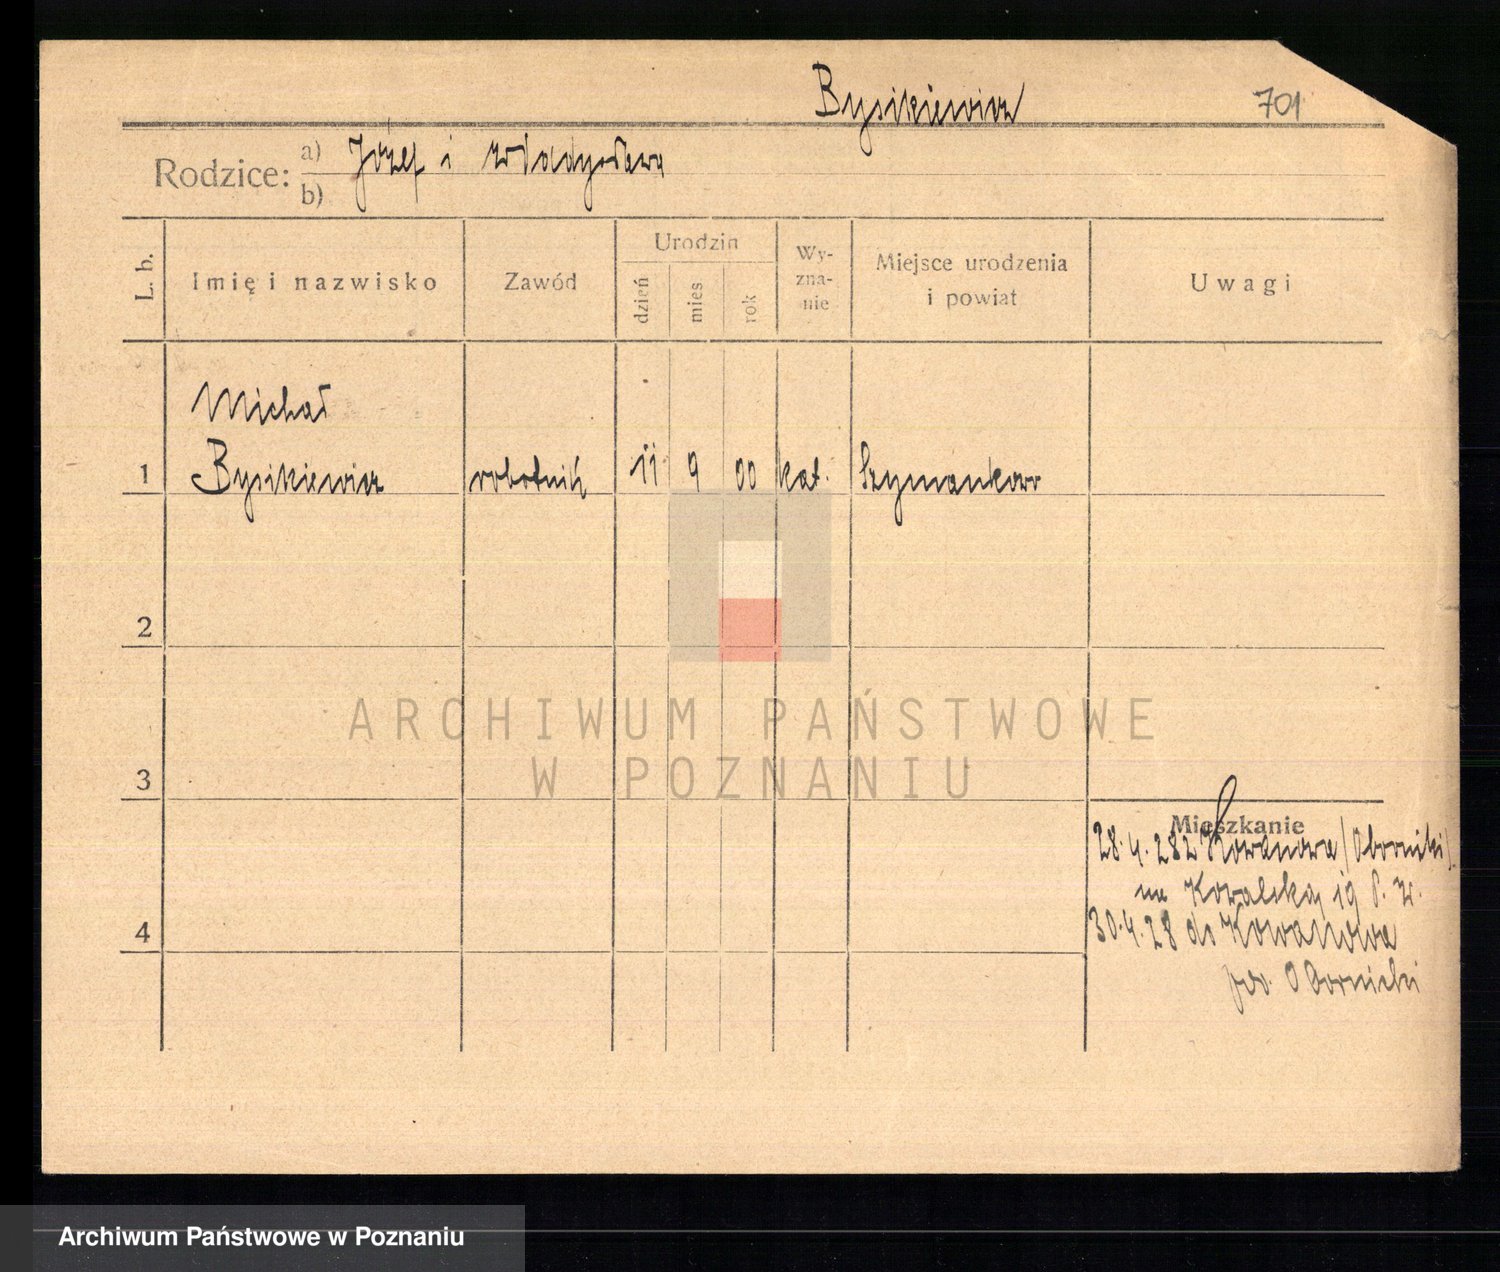 Bysikiewicz 701
Rodzice: a) Józef i Władysława
b)
L. b. Imię i nazwisko Zawód Urodzin dzień mies rok Wy-zna-nie Miejsce urodzenia i powiat Uwagi
Michał
1 Bysikiewicz robotnik 11 9 00 kat. Szymankowo
2
ARCHIWUM PAŃSTWOWE
W POZNANIU
3
Mieszkanie
28.4.28 z Kowanowa (Oborniki)
na Kowalską 19 p. w.
4
30.4.28 do Kowanowa
pow. Obornicki
Archiwum Państwowe w Poznaniu